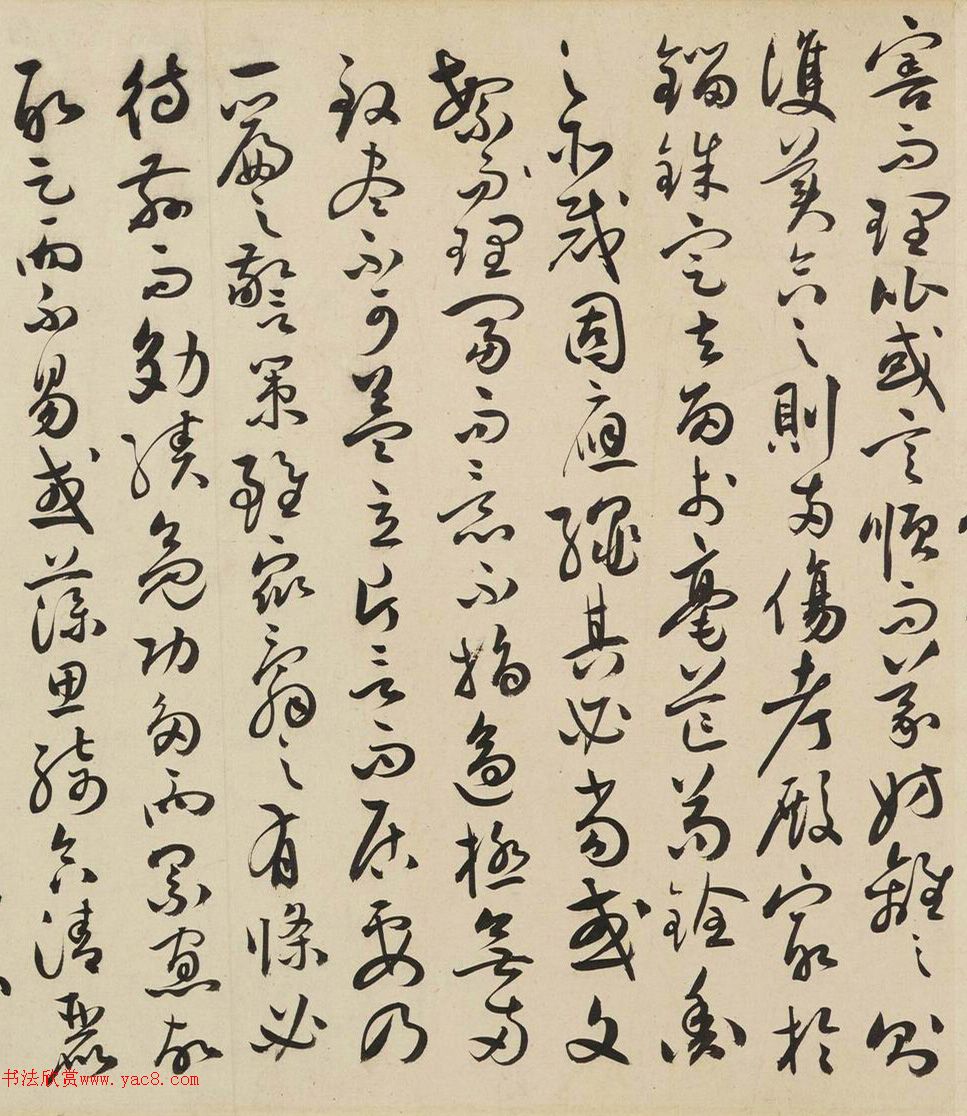 害而理比或言順而義妨離之則
雙美合之則兩傷考殿最於
錙銖定去留於毫芒苟銓衡
之所裁固應繩其必當或文
繁理富而意不指適極無兩
致盡不可益立片言而居要乃
一篇之警策雖眾辭之有條必
待茲而効績亮功多而累寡故
取足而不易或藻思綺合清麗
书法欣赏www.yac8.com